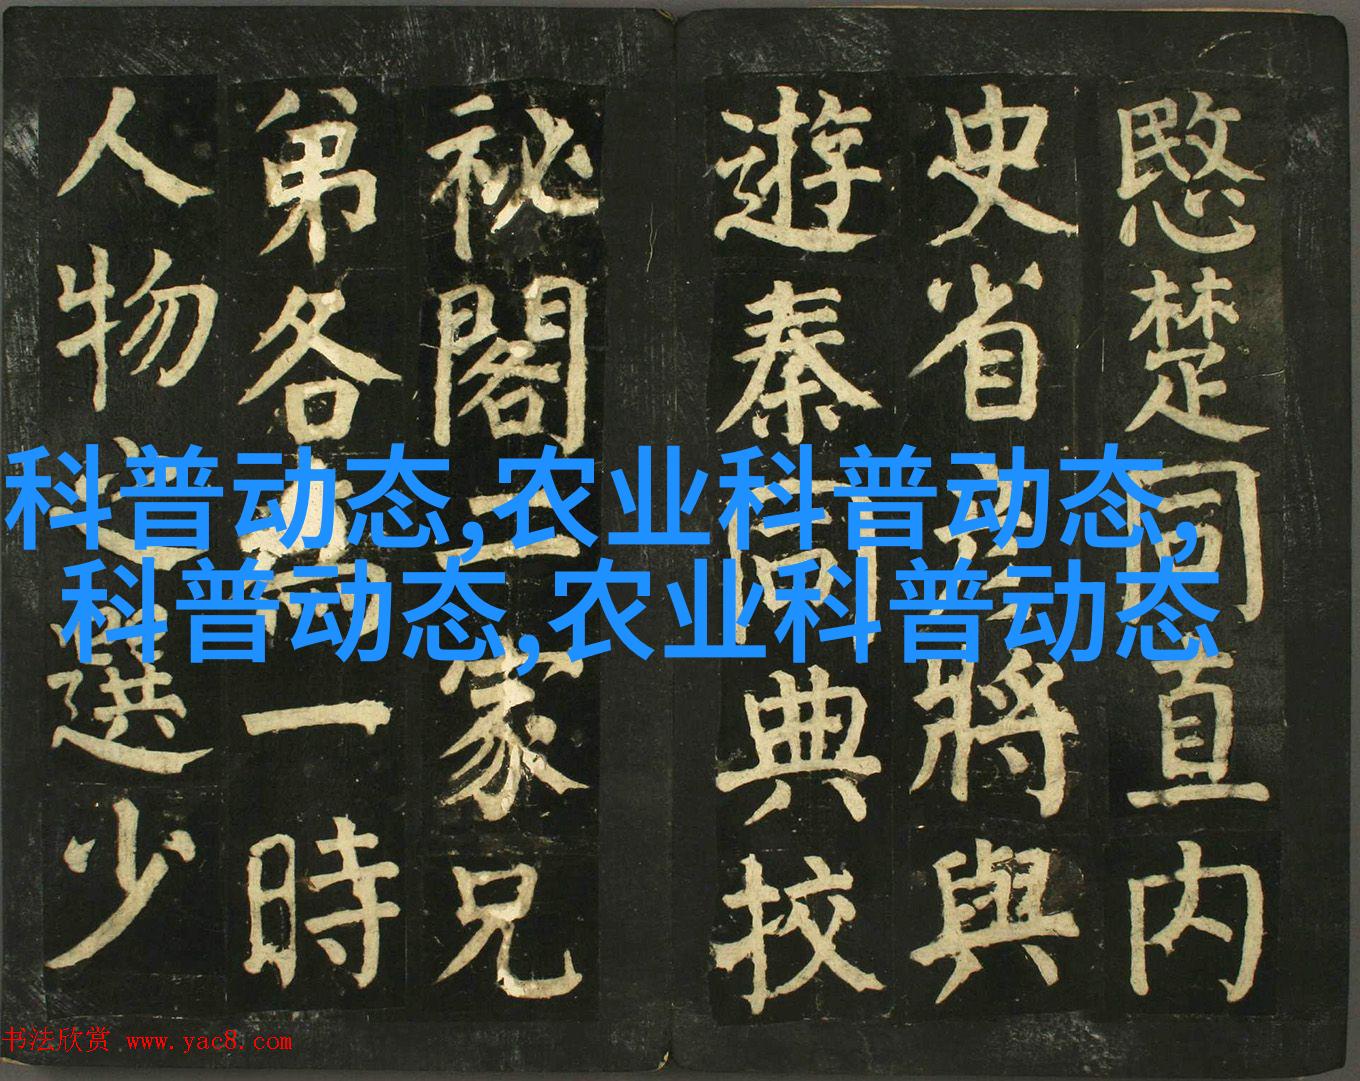 愍楚同直内
史省將與
遊秦同典校
祕閣二家兄
弟各一時
人物之選少
科普动态,农业科普动态,
科普动态,农业科普动态
书法欣赏 www.yac8.com